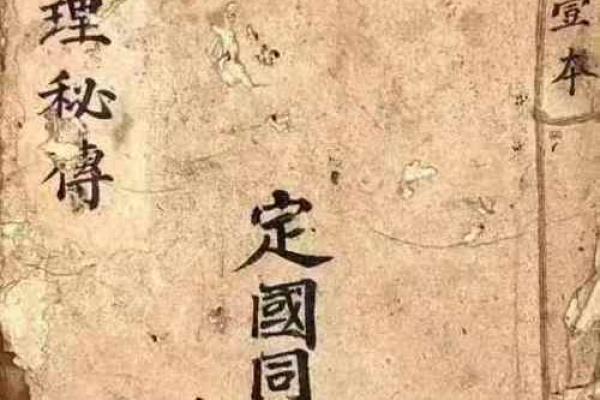 壹本
定國同
理秘傳